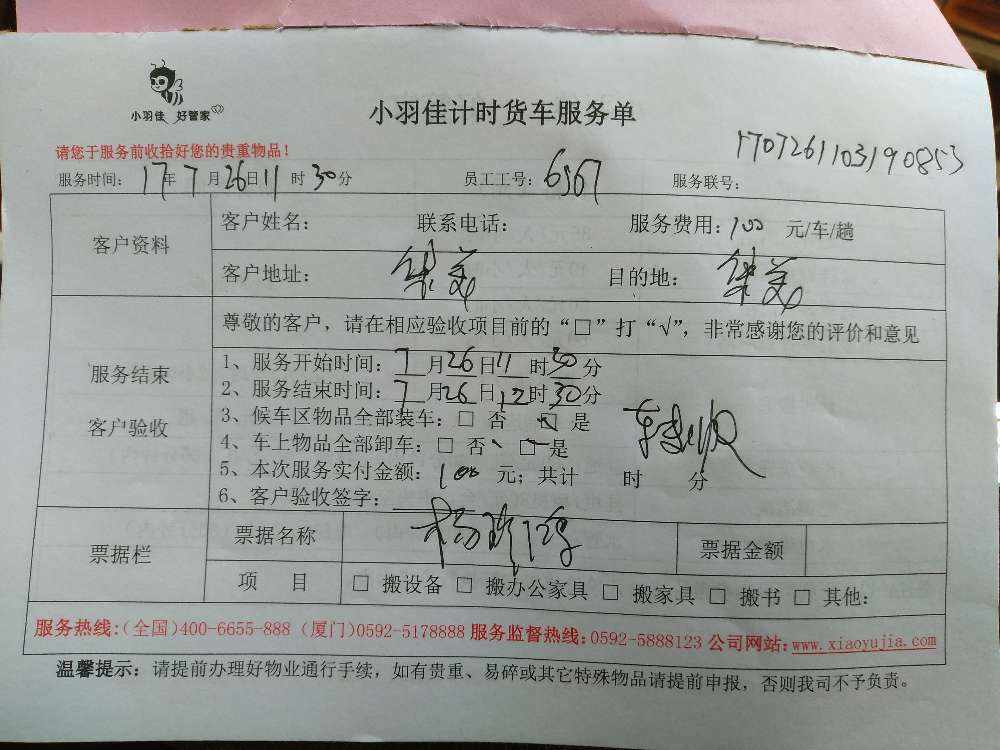 小羽佳 好管家
小羽佳计时货车服务单
1707261103190853
请您于服务前收拾好您的贵重物品！
服务时间：17年7月26日11时30分 员工工号：6567 服务联号：
客户资料
客户姓名： 联系电话： 服务费用：100 元/车/趟
客户地址：华美 目的地：华美
服务结束
客户验收
尊敬的客户，请在相应验收项目前的“□”打“√”，非常感谢您的评价和意见
1、服务开始时间：7月26日11时30分
2、服务结束时间：7月26日12时30分
3、候车区物品全部装车：□ 否 □ 是
4、车上物品全部卸车：□ 否 □ 是
5、本次服务实付金额：100 元；共计 时 分
6、客户验收签字：
票据栏
票据名称 票据金额
项 目 □ 搬设备 □ 搬办公家具 □ 搬家具 □ 搬书 □ 其他：
服务热线：（全国）400-6655-888（厦门）0592-5178888 服务监督热线：0592-5888123 公司网站：www.xiaoyujia.com
温馨提示：请提前办理好物业通行手续，如有贵重、易碎或其它特殊物品请提前申报，否则我司不予负责。